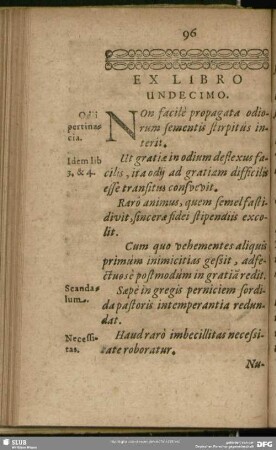 96
EX LIBRO
UNDECIMO.
NOn facilè propagata odio-
rum sementis stirpitus in-
terit.
pertinacia.
Ut gratiæ in odium deflexus fa-
cilis, ita odij ad gratiam difficilis
esse transitus consvevit.
Idem lib
3. & 4.
Rarò animus, quem semel fasti-
divit, sinceræ fidei stipendiis exco-
lit.
Cum quo vehementes aliquis
primum inimicitias gessit, adfe-
ctuosè postmodum in gratiã redit.
Scanda-
lum.
Sæpè in gregis perniciem sordi-
da pastoris intemperantia redun-
dat.
Necessi-
tas.
Haud rarò imbecillitas necessi-
tate roboratur.
Nu-
SLUB